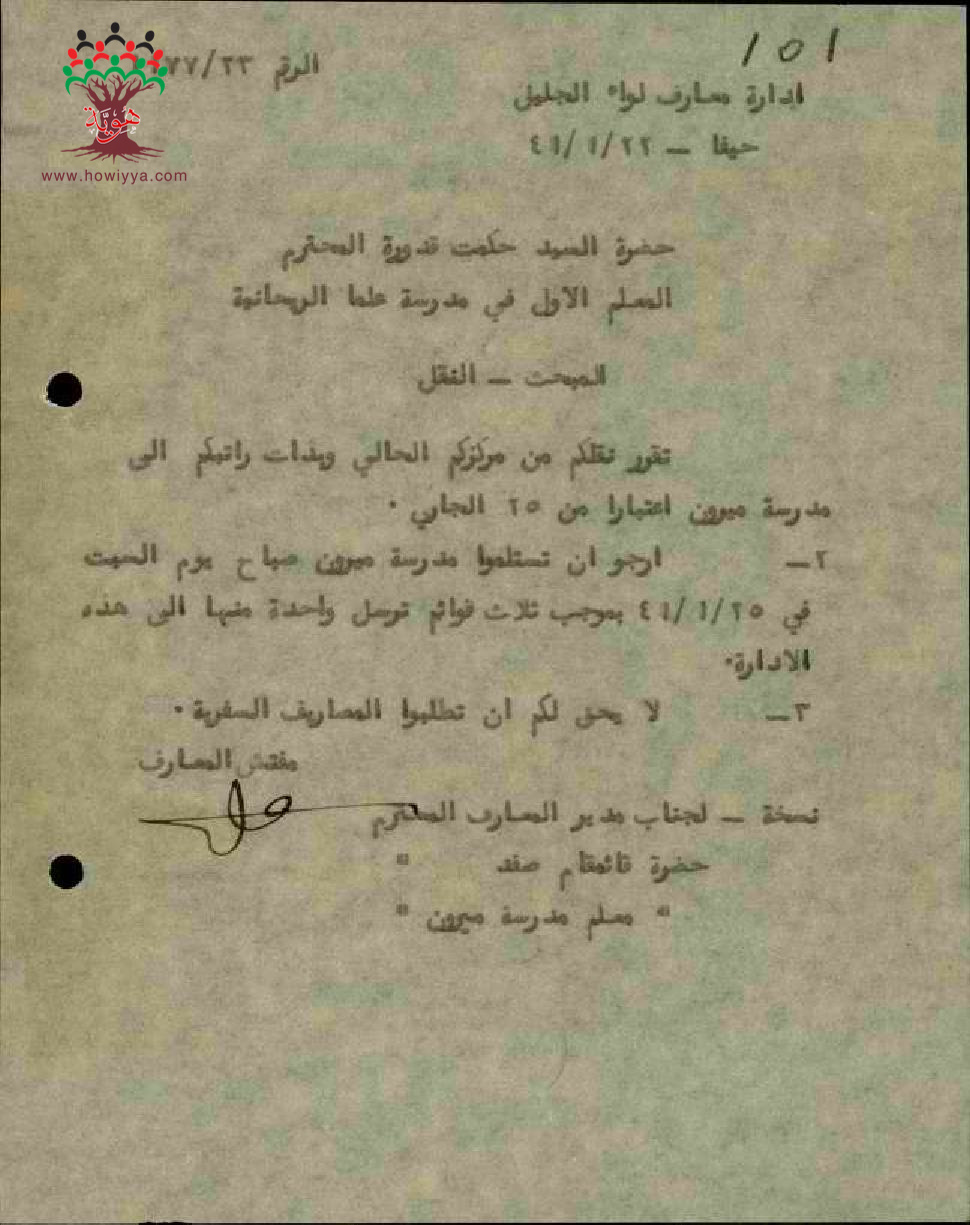 101
الرقم ٧٧/٢٣
ادارة معارف لواء الجليل
حيفا – ٤١/١/٢٢
هوية
www.howiyya.com
حضرة السيد حكمت قدورة المحترم
المعلم الاول في مدرسة علما الريحانية
المبحث – النقل
تقرر نقلكم من مركزكم الحالي وبذات راتبكم الى
مدرسة ميرون اعتبارا من ٢٥ الجاري ٠
٢– ارجو ان تستلموا مدرسة ميرون صباح يوم السبت
في ٤١/١/٢٥ بموجب ثلاث قوائم ترسل واحدة منها الى هذه
الادارة٠
٣– لا يحق لكم ان تطلبوا المصاريف السفرية ٠
مفتش المعارف
نسخة – لجناب مدير المعارف المحترم
حضرة قائمقام صفد "
" معلم مدرسة ميرون "